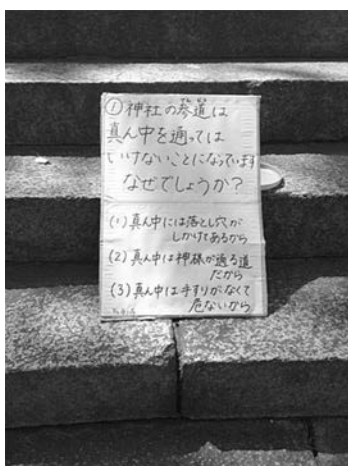 ① 神社の参道は
真ん中を通っては
いけないことになっています
なぜでしょうか？
(1) 真ん中には落とし穴が
しかけてあるから
(2) 真ん中は神様が通る道
だから
(3) 真ん中は手すりがなくて
危ないから